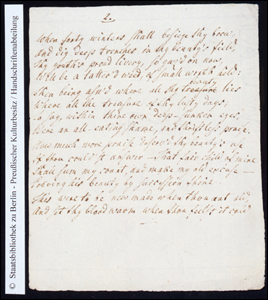 2.
When forty winters shall besiege thy brow,
and dig deep trenches in thy beauty's field,
thy youth's proud livery, so gaz'd on now,
Will be a tatter'd weed, of small worth held:
Then being ask'd where all thy beauty lies
Where all the treasure of thy lusty days;
to say, within thine own deep-sunken eyes,
Were an all-eating shame, and thriftless praise.
How much more praise deserv'd thy beauty's use
if thou could'st answer - that fair child of mine
Shall sum my count, and make my old excuse -
Proving his beauty by succession thine
This were to be new made when thou art old,
and see thy blood warm when thou feel'st it cold
© Staatsbibliothek zu Berlin - Preußischer Kulturbesitz / Handschriftenabteilung